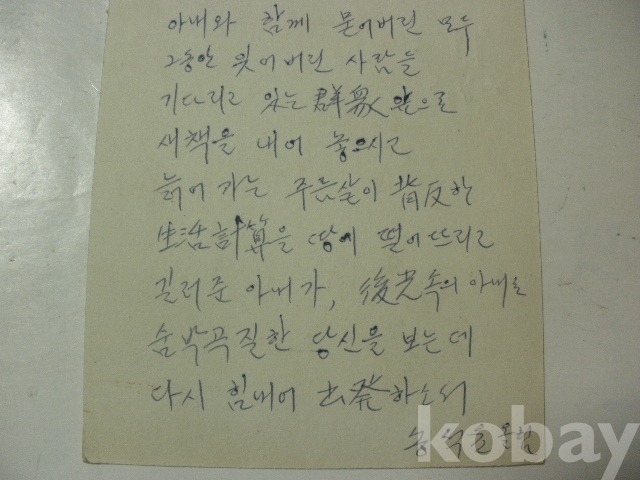 아내와 함께 묻어버린 모두
그동안 잊어버린 사람들
기다리고 있는 群衆 앞으로
새책을 내어 놓으시고
늙어 가는 주름살이 背反한
生活計算을 땅에 떨어뜨리고
길러준 아내가, 後光속의 아내로
숨박곡질한 당신을 보는데
다시 힘내어 出發하소서
송 올림
kobay